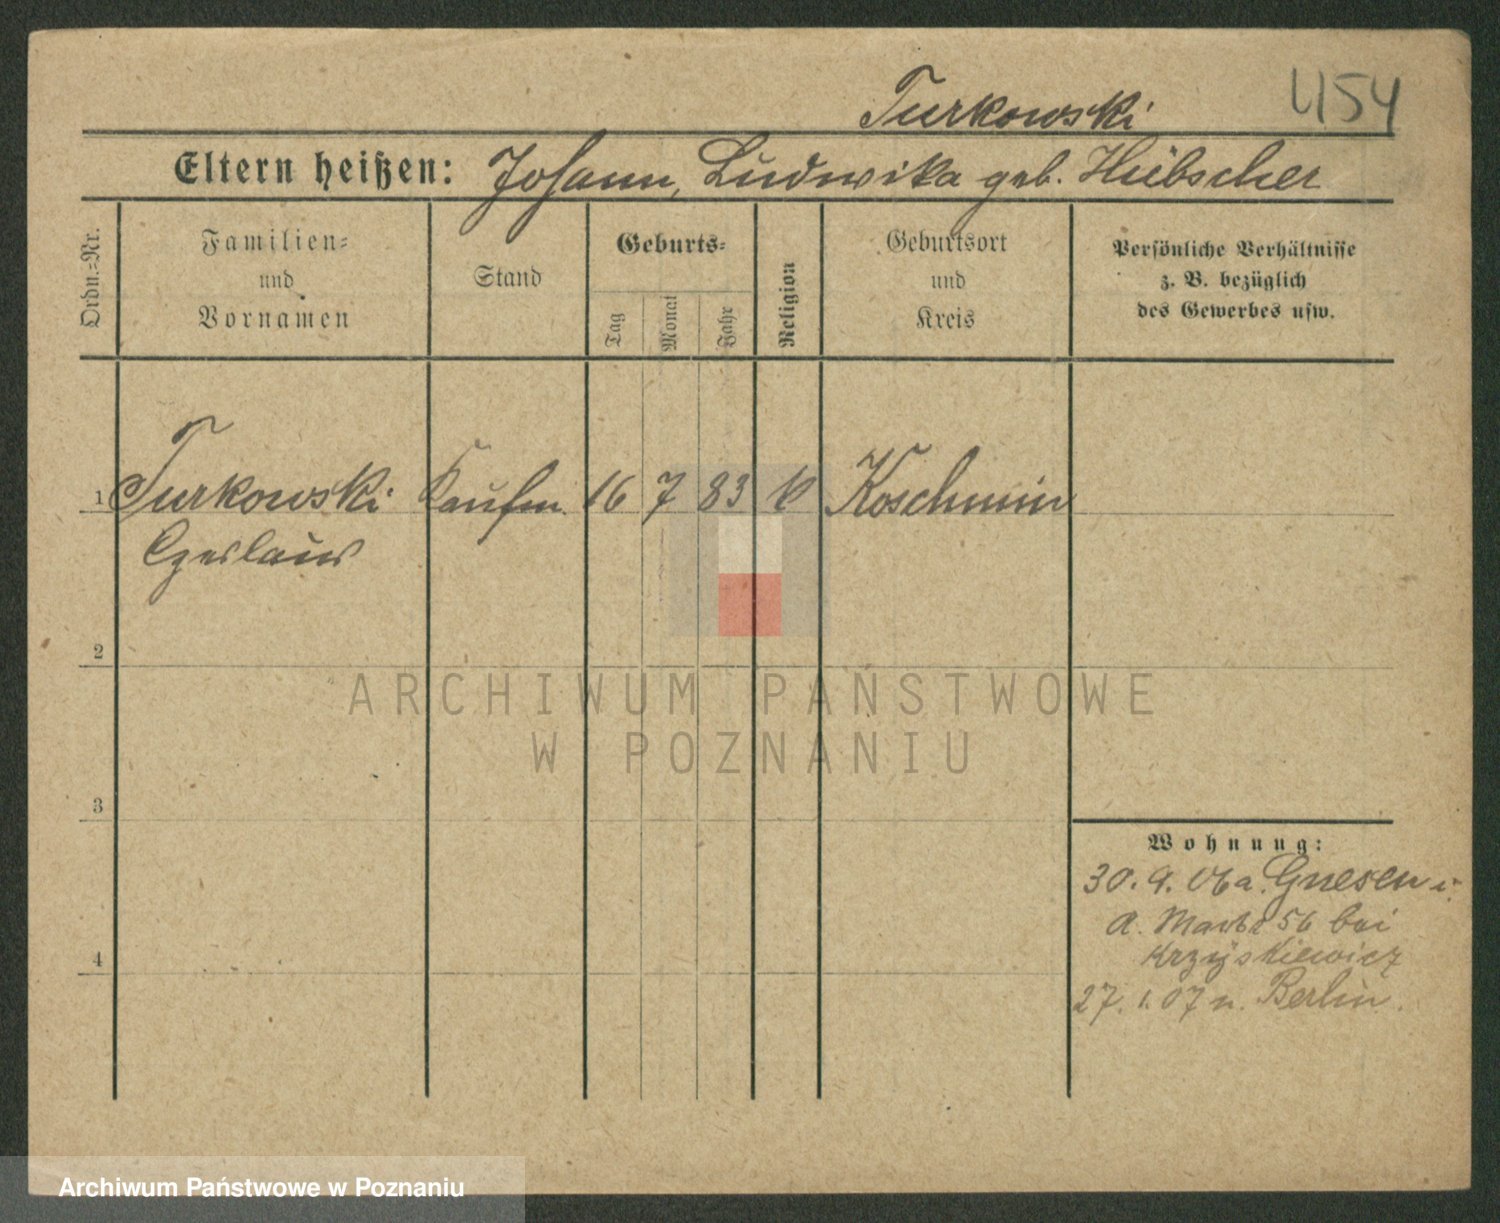 Turkowski
454
Eltern heißen: Johann, Ludwika geb. Hübscher
Ordn.-Nr.
Familien-
und
Vornamen
Stand
Geburts-
Tag
Monat
Jahr
Religion
Geburtsort
und
Kreis
Persönliche Verhältnisse
z. B. bezüglich
des Gewerbes usw.
1 Turkowski Kaufm. 16 7 83 k Koschmin
Czeslaus
2
3
4
Wohnung:
30. 9. 06 a. Gnesen i.
A. Markt 56 bei
Krzyskiewicz
27. 1. 07 n. Berlin.
ARCHIWUM PAŃSTWOWE
W POZNANIU
Archiwum Państwowe w Poznaniu